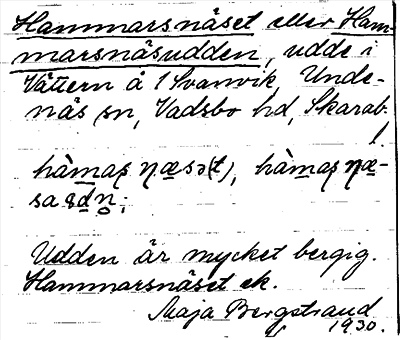 Hammarsnäset eller Ham-
marsnäsudden, udde i
Vättern å 1 Svanvik, Unde-
näs sn, Vadsbo hd, Skarab.
hàmaʂ ɳæsə(t), hàmaʂ ɳæ-
sa
Udden är mycket bergig.
Hammarsnäset ek.
Maja Bergstrand
1930.